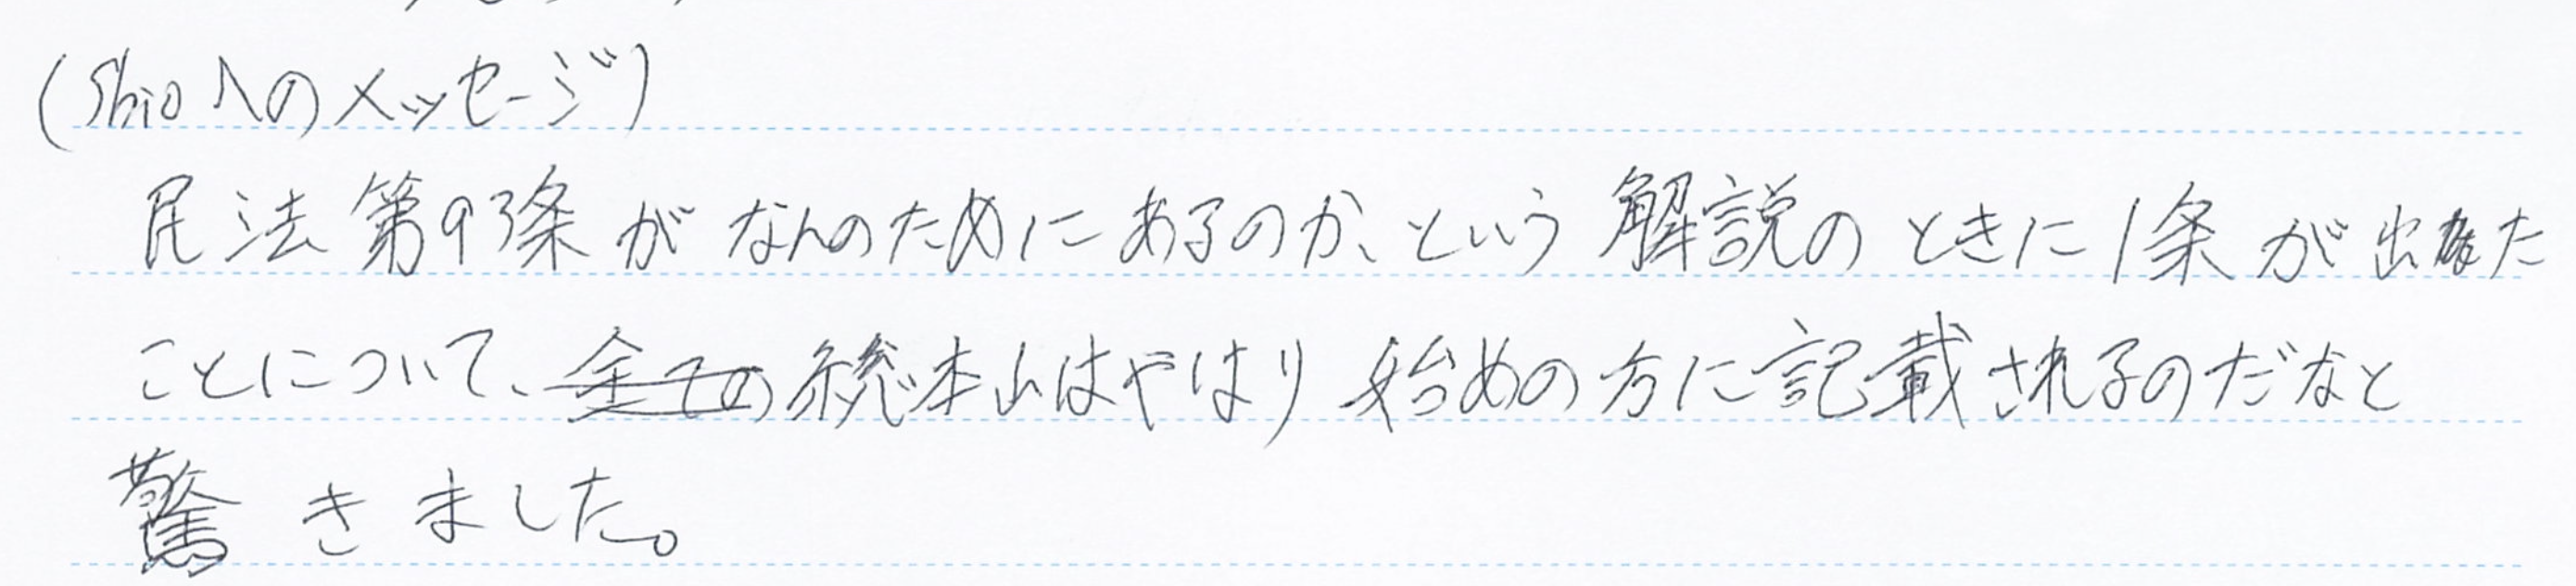 (Shioへのメッセージ)
民法第93条がなんのためにあるのか、という解説のときに1条が出た
ことについて、全ての総本山はやはり始めの方に記載されるのだなと
驚きました。